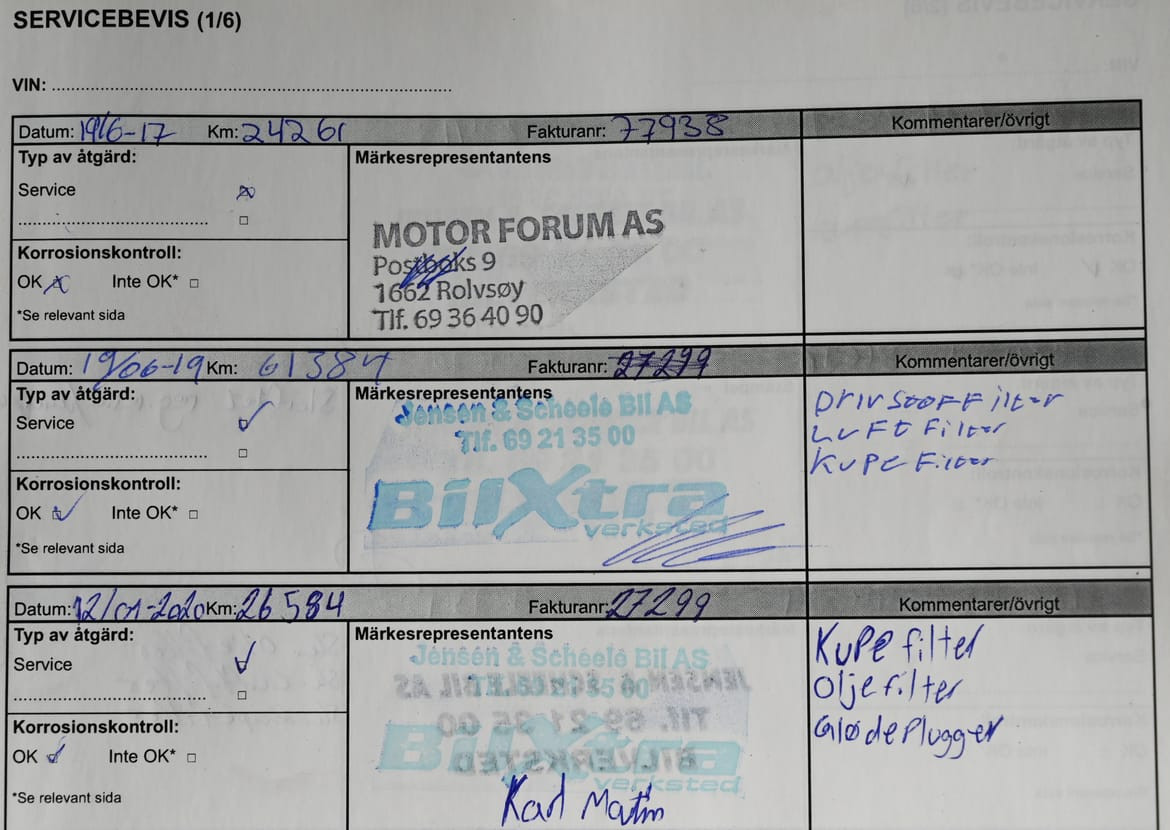 SERVICEBEVIS (1/6)
VIN: ........................................................................
Datum: 19/6-17 Km: 24261 Fakturanr: 77938 Kommentarer/övrigt
Typ av åtgärd: Märkesrepresentantens
Service
MOTOR FORUM AS
Postboks 9
1662 Rolvsøy
Tlf. 69 36 40 90
Korrosionskontroll:
OK Inte OK*
*Se relevant sida
Datum: 19/06-19 Km: 61384 Fakturanr: 27299 Kommentarer/övrigt
Typ av åtgärd: Märkesrepresentantens
Service
Jensen & Scheele Bil AS
Tlf. 69 21 35 00
BilXtra
verksted
Drivstoff Filter
Luft Filter
Kupe Filter
Korrosionskontroll:
OK Inte OK*
*Se relevant sida
Datum: 12/01-2020 Km: 26 584 Fakturanr: 27299 Kommentarer/övrigt
Typ av åtgärd: Märkesrepresentantens
Service
Jensen & Scheele Bil AS
Tlf. 69 21 35 00
BilXtra
verksted
Karl Martin
Kupe filter
Olje filter
Gløde Plugger
Korrosionskontroll:
OK Inte OK*
*Se relevant sida